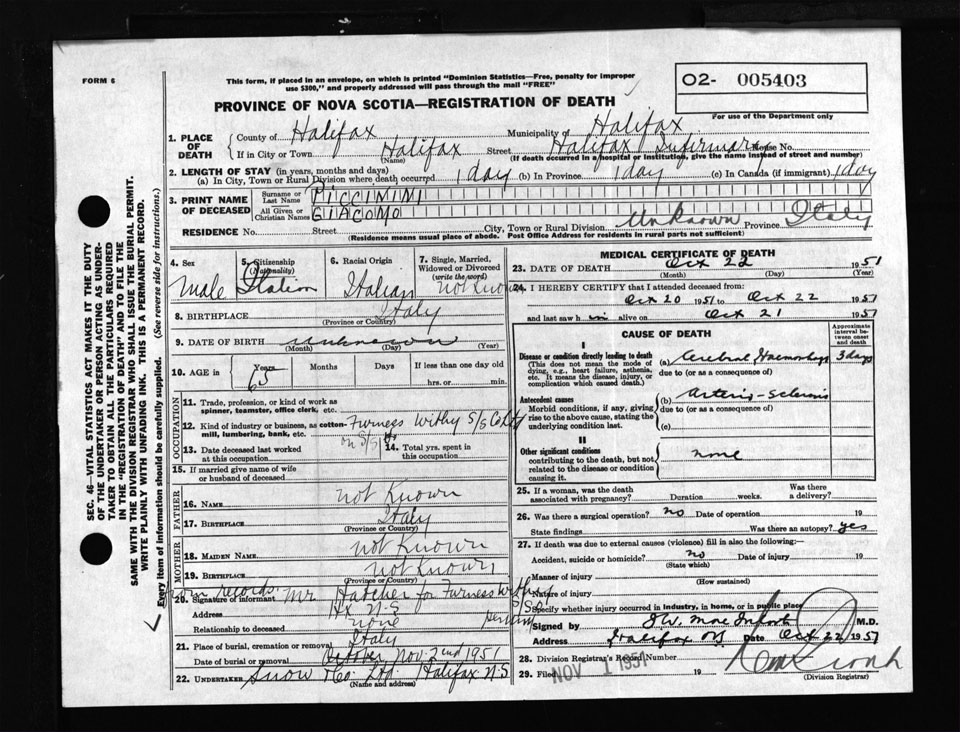 FORM 6
This form, if placed in an envelope, on which is printed "Dominion Statistics—Free, penalty for improper
use $300," and properly addressed will pass through the mail "FREE"
O2- 005403
PROVINCE OF NOVA SCOTIA—REGISTRATION OF DEATH
For use of the Department only
1. PLACE OF DEATH County of Halifax Municipality of Halifax
If in City or Town Halifax Street Halifax Infirmary House No.
(Name) (If death occurred in a hospital or institution, give the name instead of street and number)
2. LENGTH OF STAY (in years, months and days)
(a) In City, Town or Rural Division where death occurred 1 day (b) In Province 1 day (c) In Canada (if immigrant) 1 day
3. PRINT NAME OF DECEASED Surname or Last Name PICCININI
All Given or Christian Names GIACOMO
RESIDENCE No. Street City, Town or Rural Division Unknown Province Italy
(Residence means usual place of abode. Post Office Address for residents in rural parts not sufficient)
4. Sex Male
5. Citizenship (Nationality) Italian
6. Racial Origin Italian
7. Single, Married, Widowed or Divorced (write the word) not Known
8. BIRTHPLACE Italy
(Province or Country)
9. DATE OF BIRTH unknown
(Month) (Day) (Year)
10. AGE in Years 65 Months Days If less than one day old
hrs. or min.
OCCUPATION
11. Trade, profession, or kind of work as
spinner, teamster, office clerk, etc.
12. Kind of industry or business, as cotton-
mill, lumbering, bank, etc. Furness Withy S/S Co Ltd
13. Date deceased last worked
at this occupation on S/S
14. Total yrs. spent in
this occupation
15. If married give name of wife
or husband of deceased
FATHER
16. NAME not Known
17. BIRTHPLACE Italy
(Province or Country)
MOTHER
18. MAIDEN NAME not Known
19. BIRTHPLACE not Known
(Province or Country)
from records
20. Signature of informant Mr Hatcher for Furness Withy
Address Hx N-S
Relationship to deceased none
21. Place of burial, cremation or removal Italy
Date of burial or removal October Nov. 2nd 1951
22. UNDERTAKER Snow & Co. Ltd Halifax N-S
(Name and address)
MEDICAL CERTIFICATE OF DEATH
23. DATE OF DEATH Oct 22 1951
(Month) (Day) (Year)
24. I HEREBY CERTIFY that I attended deceased from:
Oct 20 1951 to Oct 22 1951
and last saw him alive on Oct 21 1951
CAUSE OF DEATH
Approximate interval between onset and death
I
Disease or condition directly leading to death
(This does not mean the mode of
dying, e.g., heart failure, asthenia,
etc. It means the disease, injury, or
complication which caused death.)
(a) Cerebral Haemorrhage 3 days
due to (or as a consequence of)
Antecedent causes
Morbid conditions, if any, giving
rise to the above cause, stating the
underlying condition last.
(b) Arterio-sclerosis
due to (or as a consequence of)
(c)
II
Other significant conditions
contributing to the death, but not
related to the disease or condition
causing it.
none
25. If a woman, was the death
associated with pregnancy? Duration weeks. Was there a delivery?
26. Was there a surgical operation? no Date of operation 19
State findings Was there an autopsy? yes
27. If death was due to external causes (violence) fill in also the following:—
Accident, suicide or homicide? no Date of injury 19
(State which)
Manner of injury
(How sustained)
Nature of injury
Specify whether injury occurred in industry, in home, or in public place
Signed by M.D.
Address Halifax NS Date Oct 22 1951
28. Division Registrar's Record Number
29. Filed NOV 1 1951 19
(Division Registrar)
SEC. 46—VITAL STATISTICS ACT MAKES IT THE DUTY
OF THE UNDERTAKER OR PERSON ACTING AS UNDER-
TAKER TO OBTAIN ALL THE PARTICULARS REQUIRED
IN THE "REGISTRATION OF DEATH" AND TO FILE THE
SAME WITH THE DIVISION REGISTRAR WHO SHALL ISSUE THE BURIAL PERMIT.
WRITE PLAINLY WITH UNFADING INK. THIS IS A PERMANENT RECORD.
Every item of information should be carefully supplied. (See reverse side for instructions.)